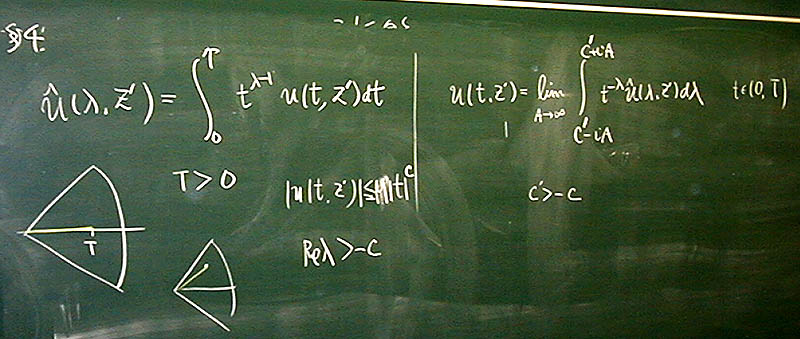 §4.
û(λ, z') = ∫₀ᵀ t^{λ-1} u(t, z') dt
T > 0
|u(t, z')| ≤ M|t|^c
Re λ > -c
T
u(t, z') = lim_{A→∞} ∫_{c'-iA}^{c'+iA} t^{-λ} û(λ, z') dλ t∈(0, T)
c' > -c